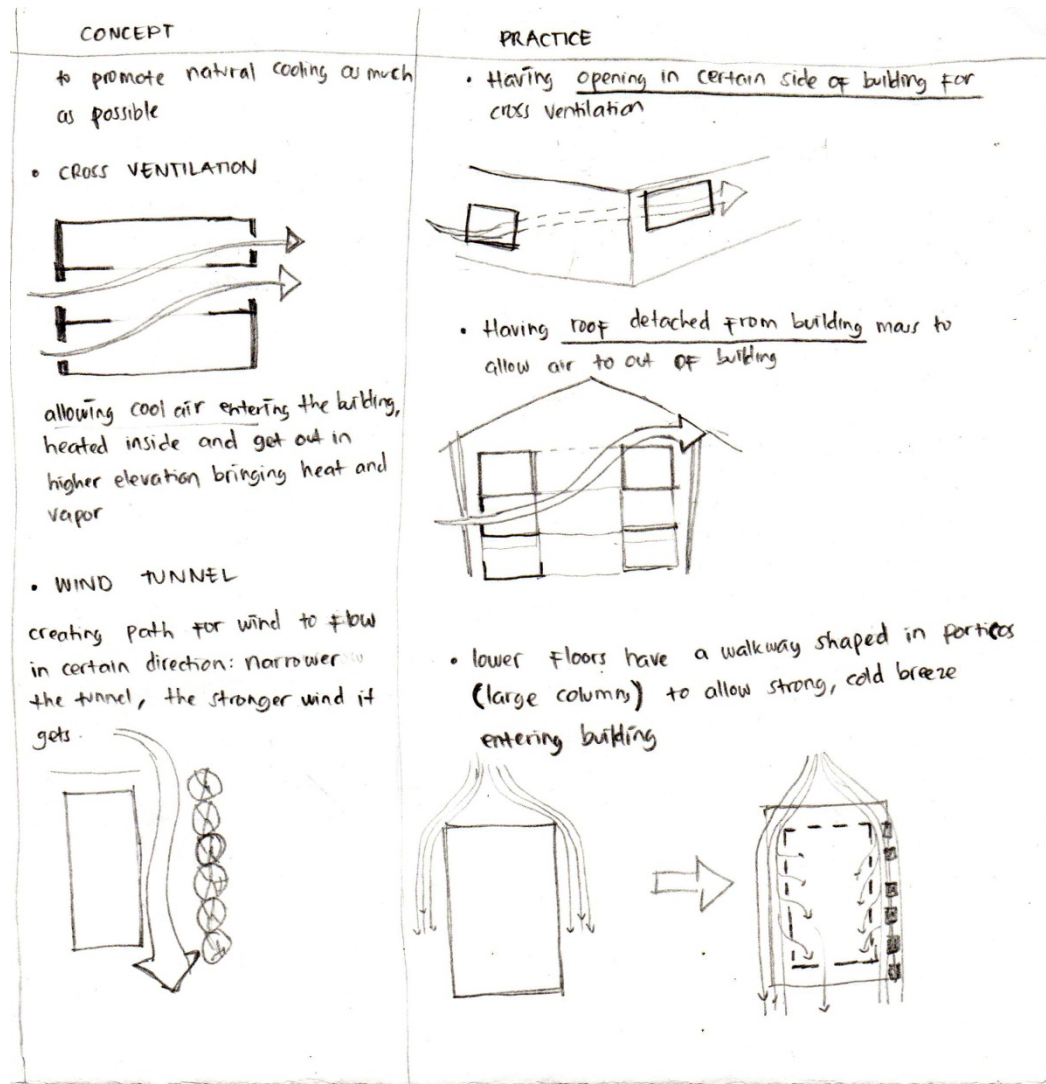 CONCEPT
to promote natural cooling as much
as possible
• CROSS VENTILATION
allowing cool air entering the building,
heated inside and get out in
higher elevation bringing heat and
vapor
• WIND TUNNEL
creating path for wind to flow
in certain direction: narrower
the tunnel, the stronger wind it
gets.
PRACTICE
• Having opening in certain side of building for
cross ventilation
• Having roof detached from building mass to
allow air to out of building
• lower floors have a walkway shaped in porticos
(large columns) to allow strong, cold breeze
entering building